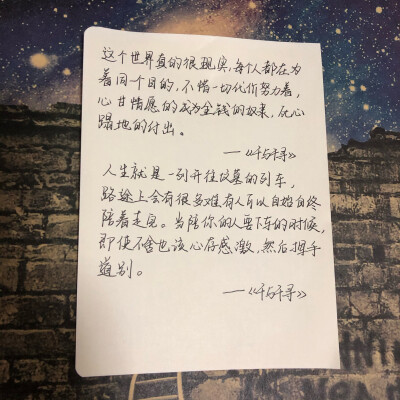 这个世界真的很现实,每个人都在为
着同个目的,不惜一切代价努力着,
心甘情愿的成为金钱的奴隶,死心
蹋地的付出。
——《千与千寻》
人生就是一列开往坟墓的列车,
路途上会有很多难有人可以自始自终
陪着走完。当陪你的人要下车的时候,
即使不舍也该心存感激,然后挥手
道别。
——《千与千寻》